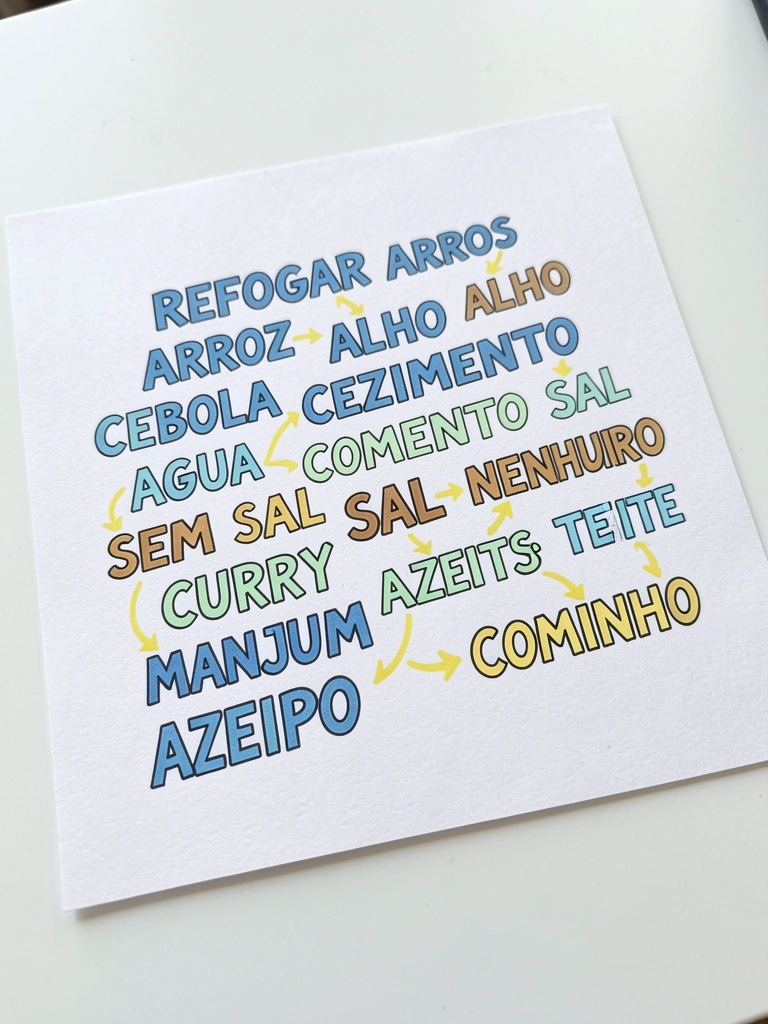 REFOGAR ARROS
ARROZ ALHO ALHO
CEBOLA CEZIMENTO
AGUA COMENTO SAL
SEM SAL SAL NENHUIRO
CURRY AZEITS TEITE
MANJUM COMINHO
AZEIPO